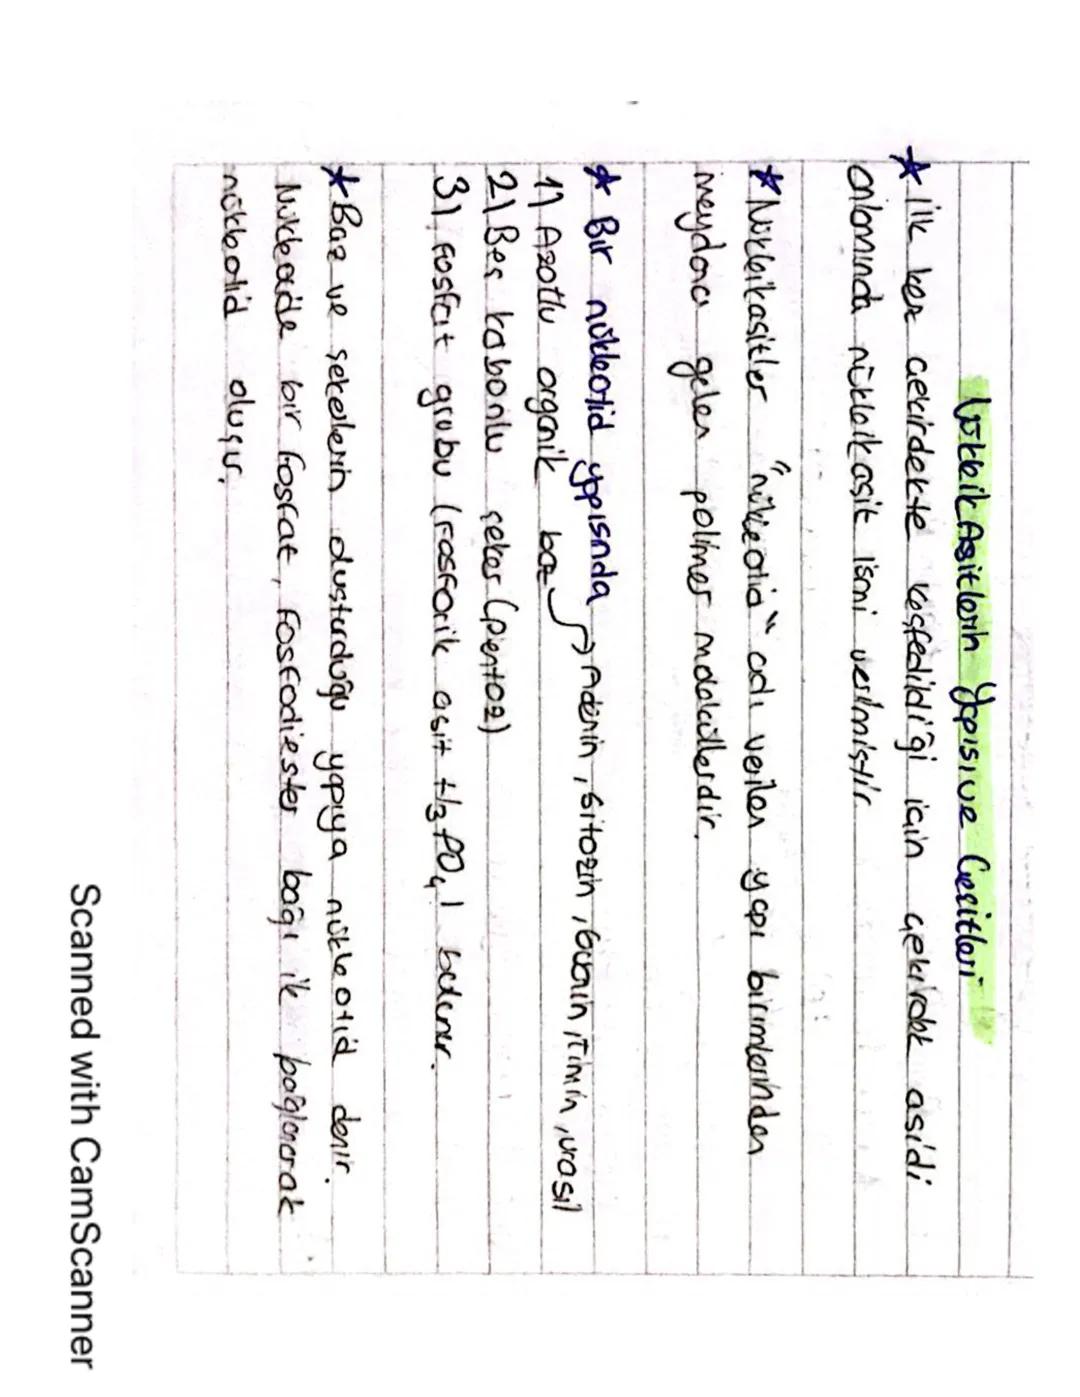 Nükleik Asitlerin Yapısı ve Çeşitleri
* İlk kez çekirdekte keşfedildiği için çekirdek asidi
anlamında nükleik asit ismi verilmiştir
* Nükleikasitler "nükleotid" adı verilen yapı birimlerinden
meydana gelen polimer moleküllerdir.
* Bir nükleotid yapısnda
1) Azotlu organik baz → Adenin, Sitozin, Guanin, Timin, urasil
2) Beş kabonlu şeker (pentoz)
3) Fosfat grubu (Fosforik asit H3PO4) bulunur.
* Baz ve şekelerin oluşturduğu yapıya nükleotid denir.
Nükleotide bir fosfat, Fosfodiester bağı ile bağlanarak
nükleotid oluşur.
Scanned with CamScanner